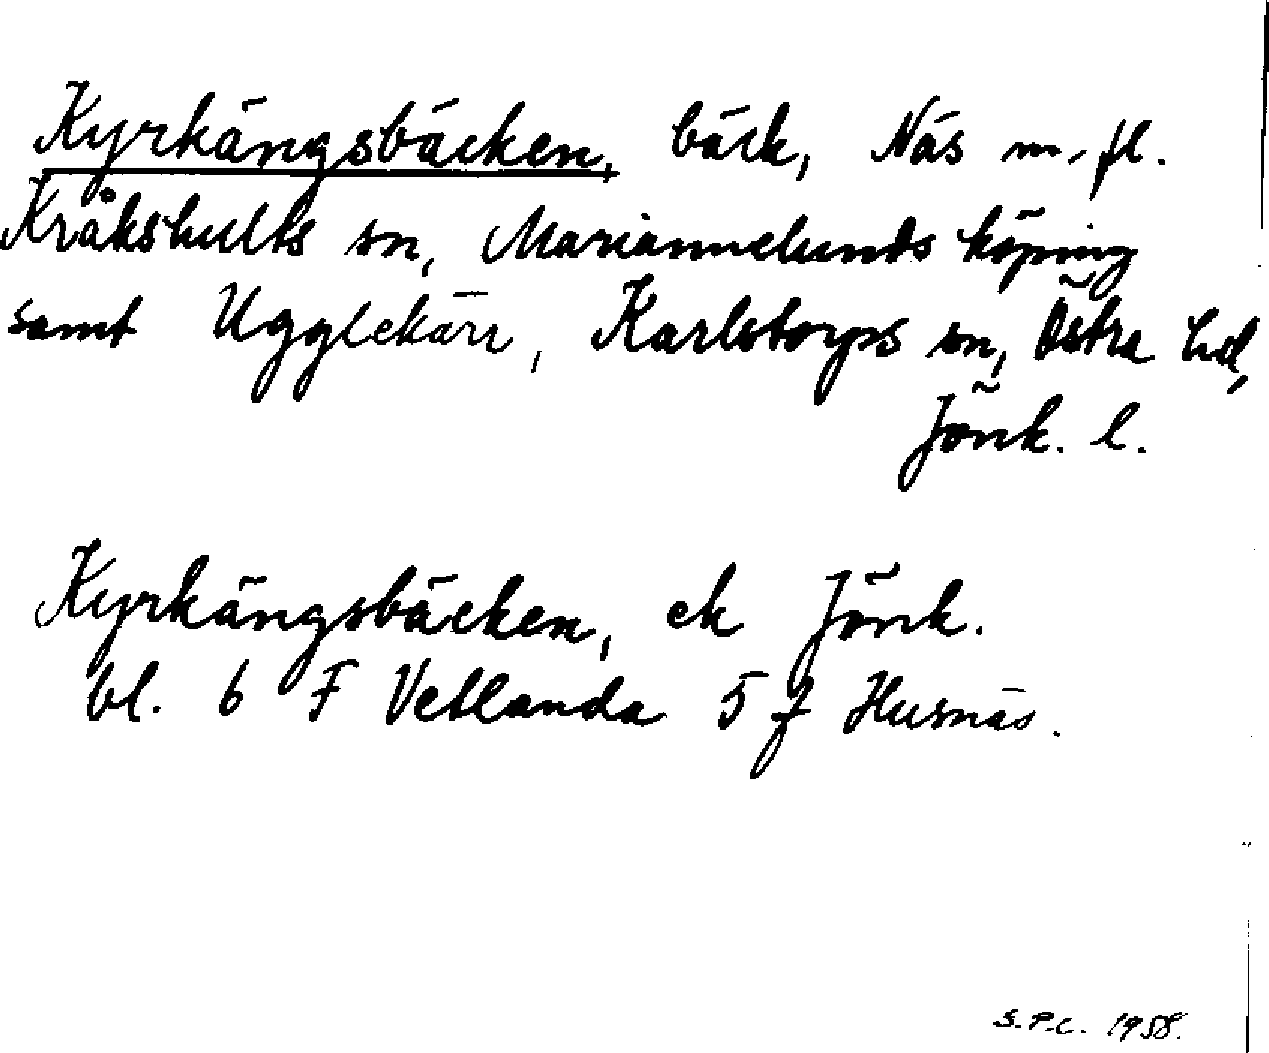 Kyrkängsbäcken, bäck, Näs m. fl.
Kråkshults sn, Mariannelunds köping
samt Ugglekärr, Karlstorps sn, Östra hd,
Jönk. l.
Kyrkängsbäcken, ek Jönk.
bl. 6 F Vetlanda 5 f Husnäs.
S.P.C. 1958.